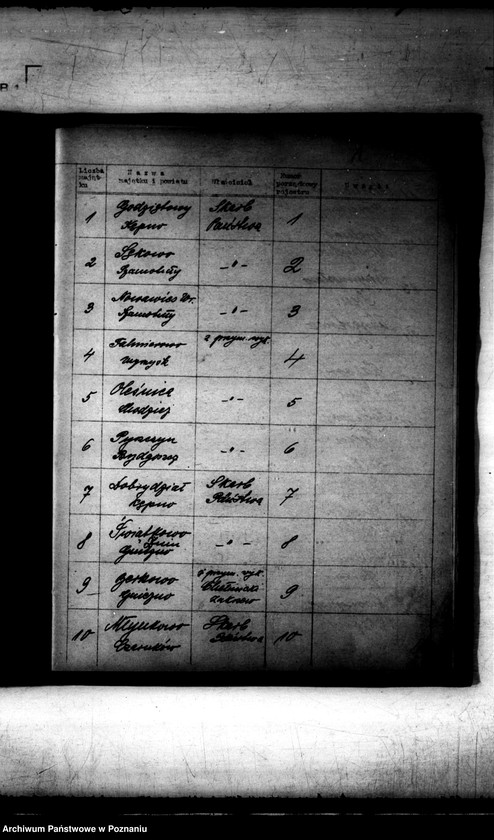 Liczba
majęt-
ku
Nazwa
majątku i powiatu
Właściciel
Numer
porządkowy
rejestru
Uwagi
1 Godziętowy Skarb 1
Kępno Państwa
2 Sękowo - " - 2
Szamotuły
3 Nowawieś - " - 3
Szamotuły
4 z przym. wyk. 4
Wyrzysk
5 Oleśnica - " - 5
Chodzież
6 - " - 6
Bydgoszcz
7 Dobrydział Skarb 7
Kępno Państwa
8 Świątkowo - " - 8
Żnin
Gniezno
9 z przym. wyk. 9
Gniezno
10 Młynkowo Skarb 10
Czarnków Państwa
Archiwum Państwowe w Poznaniu